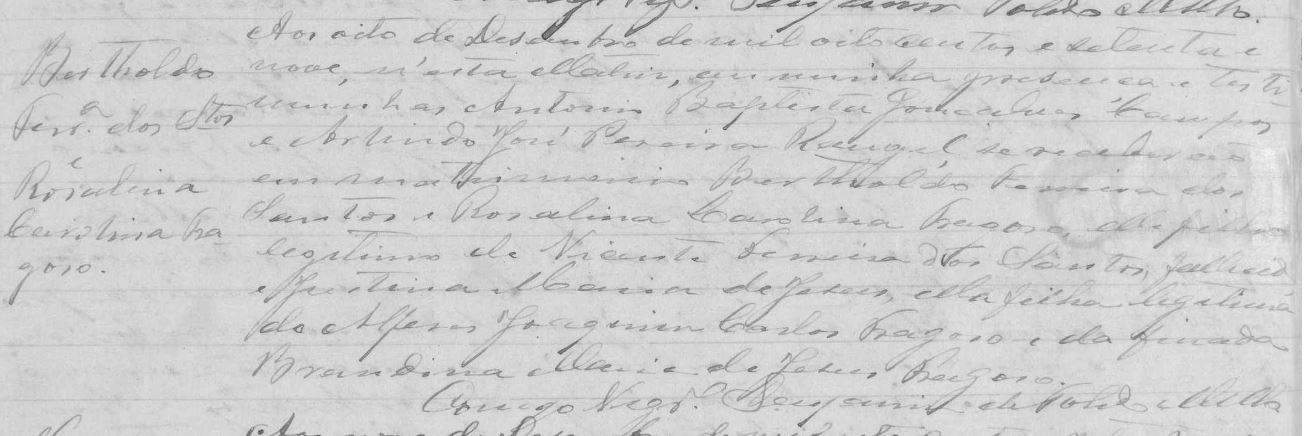 Benjamin Toledo Mello.
Bertholdo
Ferr.ª dos Stos
e
Rosalina
Carolina Fra-
goso.
Aos oito de Desembro de mil oito centos e setenta e
nove, n'esta Matriz, em minha presença e teste-
munhas Antonio Baptista Gonçalves Campos
e Arlindo José Pereira Rangel se receberão
em matrimonio Bertholdo Ferreira dos
Santos e Rosalina Carolina Fragoso, elle filho
legitimo de Vicente Ferreira dos Santos, fallecido
e Justina Maria de Jesus, ella filha legitima
do Alferes Joaquim Carlos Fragoso e da finada
Brandina Maria de Jesus Fragoso.
Conego Vigr.º Benjamin de Toledo Mello